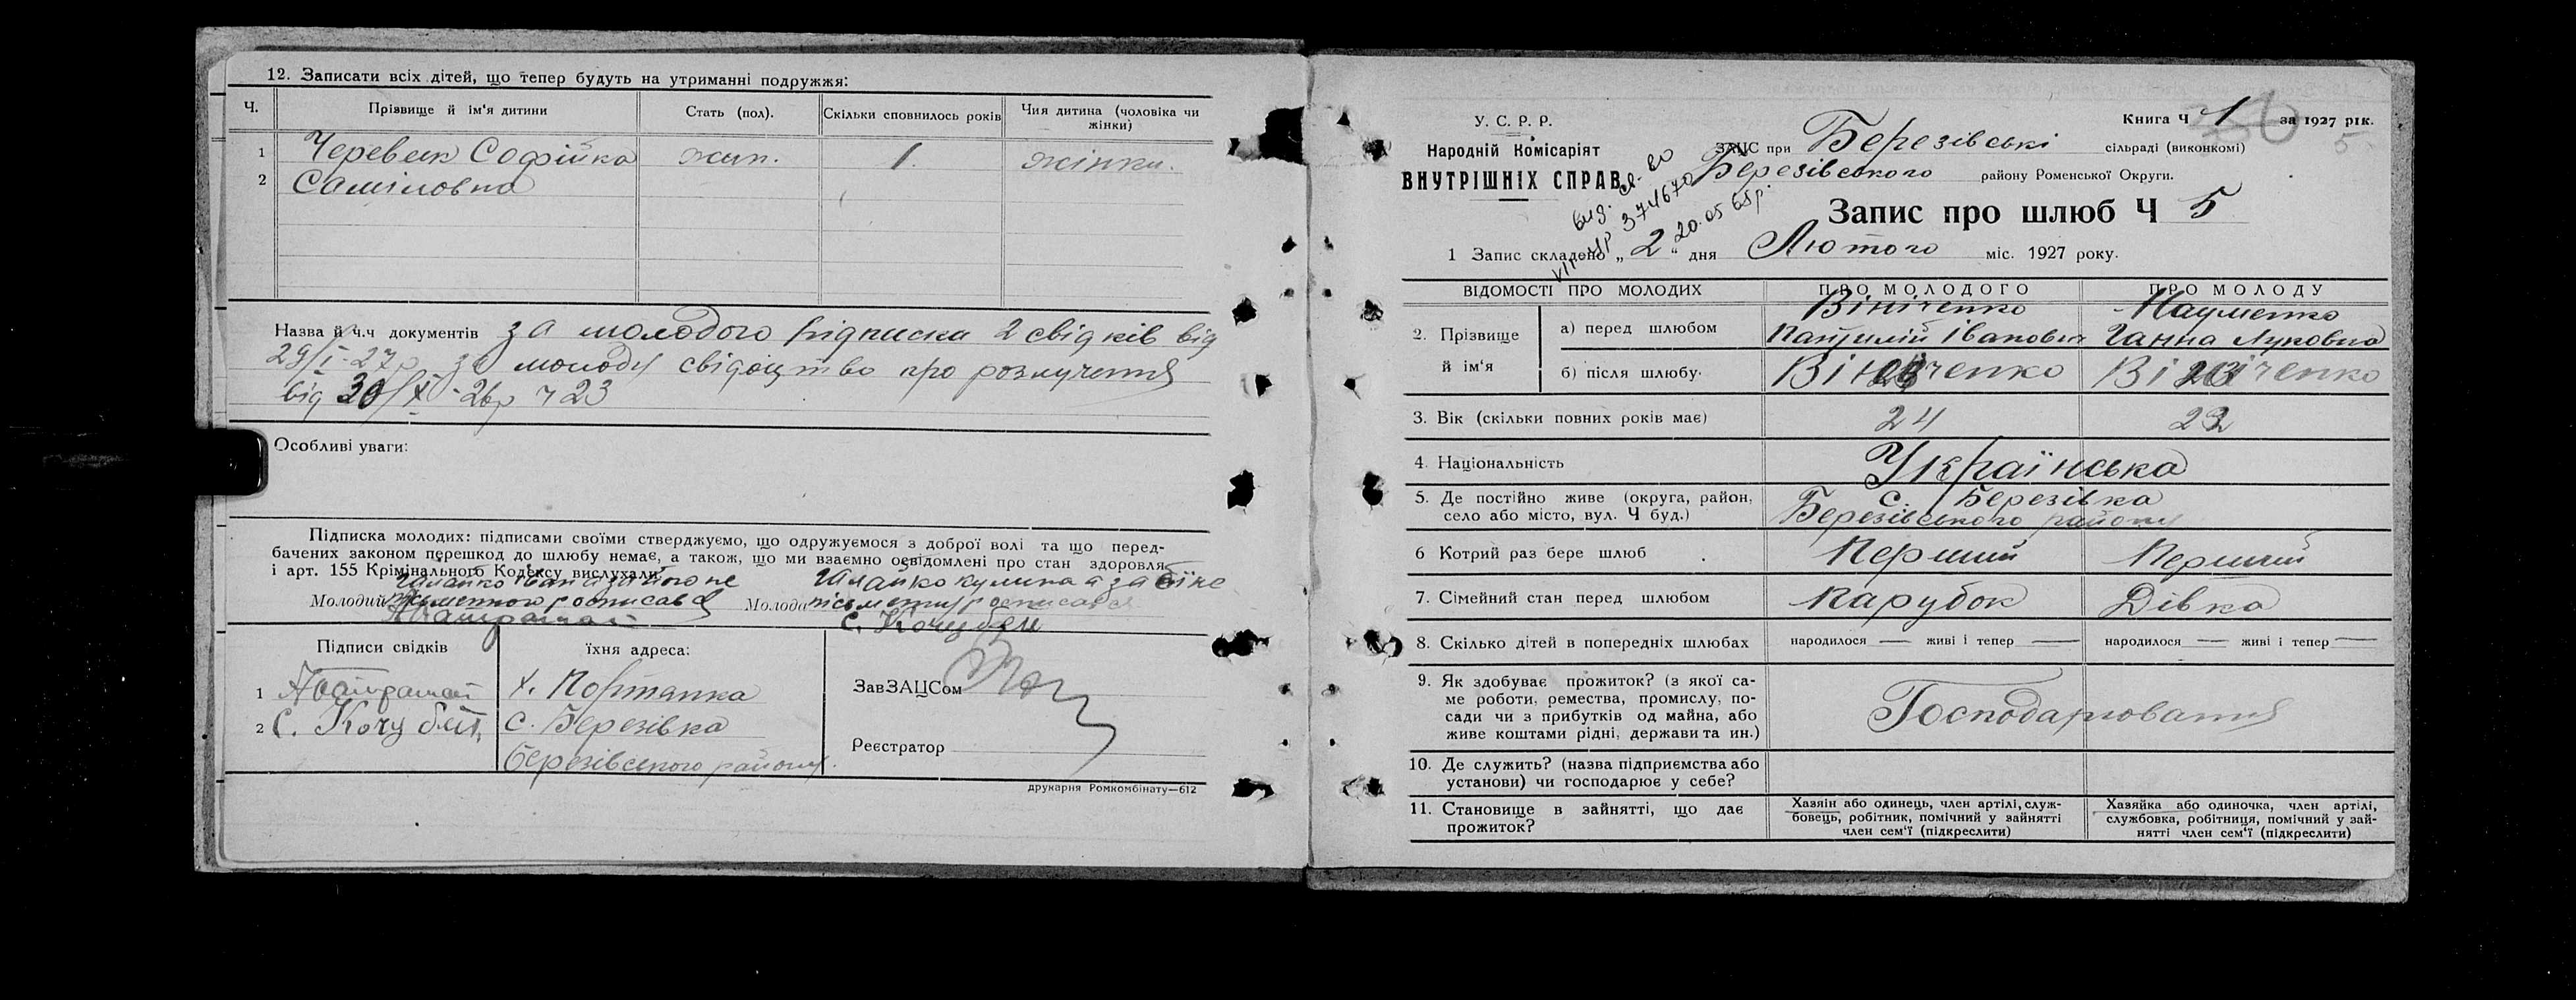 12. Записати всіх дітей, що тепер будуть на утриманні подружжя:
Ч. Прізвище й ім'я дитини Стать (пол). Скільки сповнилось років Чия дитина (чоловіка чи жінки)
1 Черевик Софійка жын. 1. жінки.
2
Назва й ч.ч документів за молодого підписка 2 свідків від
29/I-27р за молоду свідоцтво про розлучення
від 30/X-26р ч 23
Особливі уваги:
Підписка молодих: підписами своїми стверджуємо, що одружуємося з доброї волі та що перед-
бачених законом перешкод до шлюбу немає, а також, що ми взаємно освідомлені про стан здоровля
і арт. 155 Крімінального Кодексу вислухали.
Молодий Молода
С. Кочубей
Підписи свідків їхня адреса:
1 х. Портянка ЗавЗАЦСом
2 С. Кочубей, с. Березівка
Березівського району. Реєстратор
друкарня Ромкомбінату—612
У. С. Р. Р.
Народній Комісаріят
ВНУТРІШНІХ СПРАВ
Книга Ч 1 за 1927 рік.
5
ЗАЦС при Березівські сільраді (виконкомі)
Березівського району Роменської Округи.
374670
20.05 65р.
Запис про шлюб Ч 5
1 Запис складено „2" дня Лютого міс. 1927 року.
ВІДОМОСТІ ПРО МОЛОДИХ ПРО МОЛОДОГО ПРО МОЛОДУ
2. Прізвище й ім'я а) перед шлюбом Вініченко Іванович Науменко Ганна Луковна
б) після шлюбу. Вініченко Вініченко
3. Вік (скільки повних років має) 24 23
4. Національність Українська
5. Де постійно живе (округа, район, село або місто, вул. Ч буд.) с. Березівка
Березівського району
6 Котрий раз бере шлюб Перший Перший
7. Сімейний стан перед шлюбом Парубок Дівка
8. Скілько дітей в попередніх шлюбах народилося — живі і тепер — народилося — живі і тепер —
9. Як здобуває прожиток? (з якої са-
ме роботи, ремества, промислу, по-
сади чи з прибутків од майна, або
живе коштами рідні, держави та ин.) Господарювання
10. Де служить? (назва підприємства або
установи) чи господарює у себе?
11. Становище в зайнятті, що дає
прожиток?
Хазяїн або одинець, член артілі, служ-
бовець, робітник, помічний у зайнятті
член сем'ї (підкреслити)
Хазяйка або одиночка, член артілі,
службовка, робітниця, помічний у зай-
нятті член сем'ї (підкреслити)